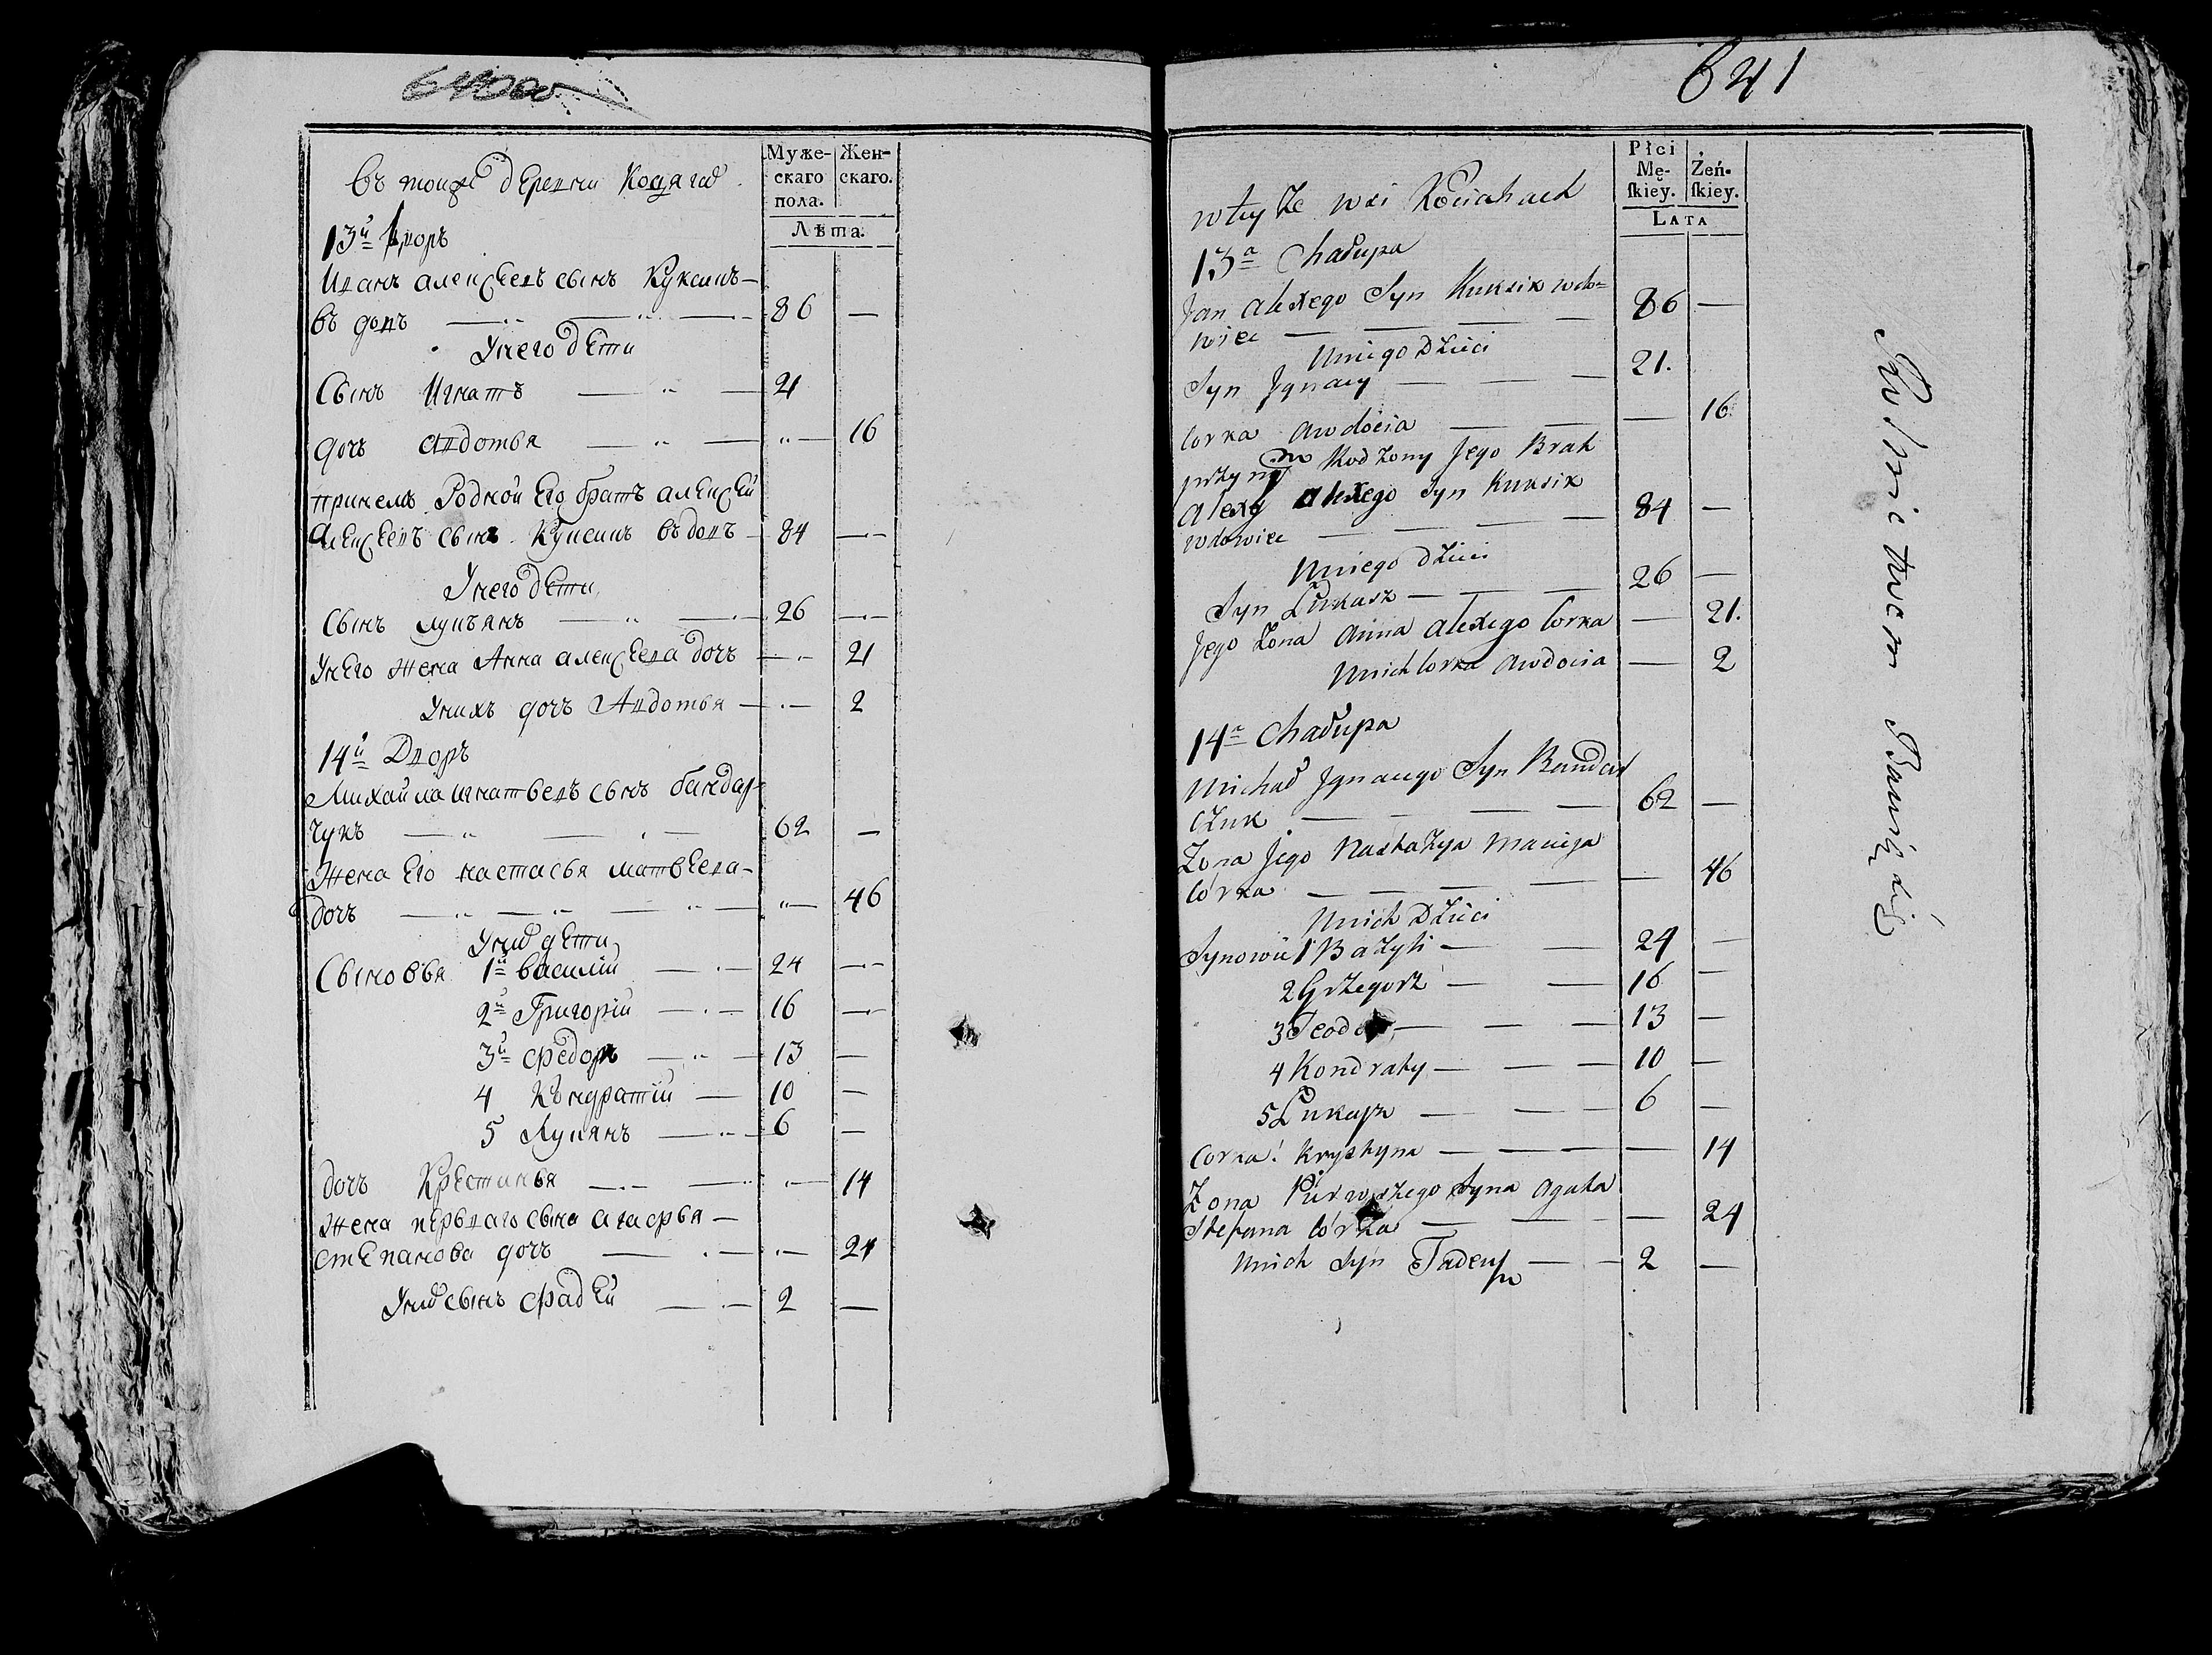 въ тойже деревни Косягахъ
Муже-
скаго
пола.
Жен-
скаго.
Лѣта.
13й Дворъ
Иванъ алексеевъ сынъ Куксикъ
вдовъ 86 —
У него дети
Сынъ Игнатъ 21
дочь авдотья 16
при немъ Родной Его братъ алексей
алексеевъ сынъ Куксикъ вдовъ 84 —
У него дети
Сынъ лукъянъ 26 —
У него жена Анна алексеева дочь — 21
У нихъ дочь Авдотья — 2
14й Дворъ
Михайла игнатьевъ сынъ бандар-
чукъ 62 —
Жена Его настасья матвеева
дочь — 46
У нихъ дети
Сыновья 1й василій 24 —
2й Григорій 16 —
3й Федоръ 13 —
4 Кондратій 10 —
5 Лукянъ 6 —
дочь Крестинья — 14
Жена перваго сына агафья —
степанова дочь — 24
У нихъ сынъ Фадей 2 —
641
w tey że wsi Kościahach
Płci
Mę-
skiey.
Żeń-
skiey.
LATA
13a Chałupa
Jan Alexego Syn Kuksik wdo=
wiec 86 —
U niego Dzieci
Syn Jgnacy 21.
Corka Awdocia — 16.
przy nim Rodzony Jego Brat
Alexy Alexego Syn Kuksik
wdowiec 84 —
U niego Dzieci
Syn Łukasz 26 —
Jego Żona Anna Alexego Corka — 21.
U nich Corka Awdocia — 2
14a Chałupa
Michał Jgnacego Syn Bandar
czuk 62 —
Żona Jego Nastazya Macieja
Córka — 46
U nich Dzieci
Synowie 1 Bazyli 24 —
2 Grzegorz 16 —
3 Teodor 13 —
4 Kondraty 10 —
5 Łukasz 6 —
Corka 1 Krystyna — 14
Żona Pierwszego Syna Agata
Stefana Córka — 24
U nich Syn Tadeusz 2 —